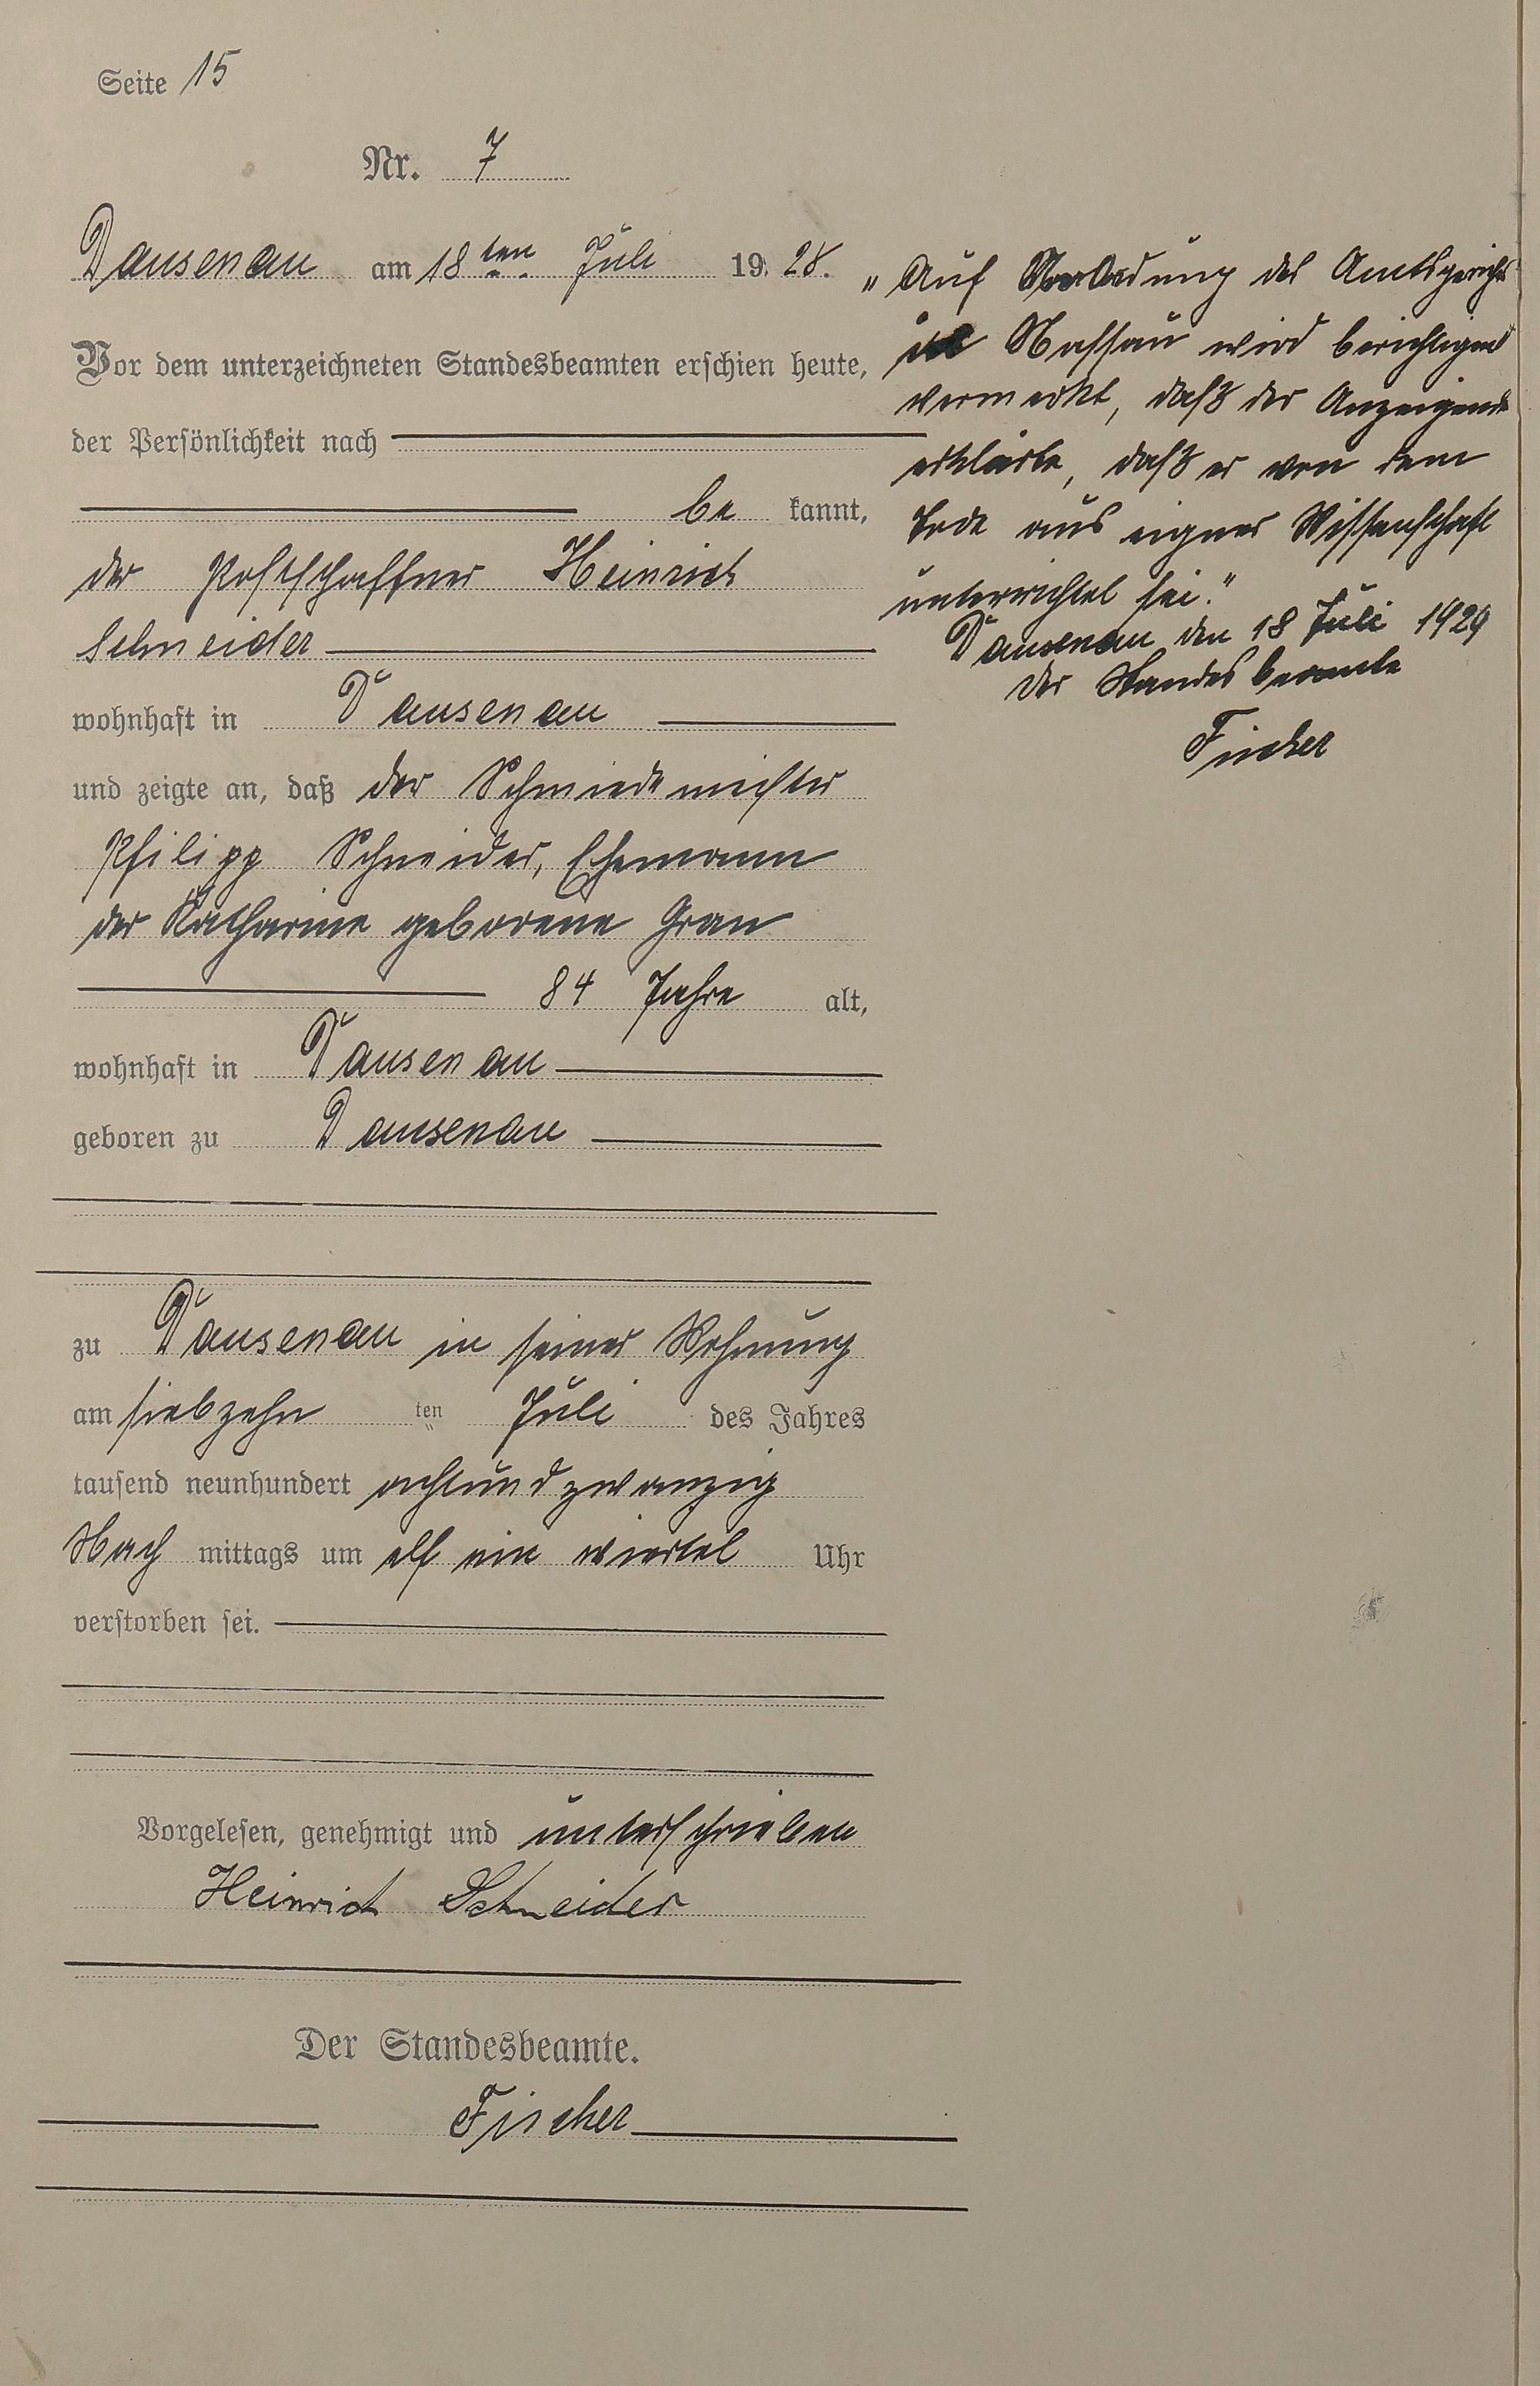 Seite 15
Nr. 7
Dausenau am 18ten Juli 1928.
Vor dem unterzeichneten Standesbeamten erschien heute,
der Persönlichkeit nach
be kannt,
der Postschaffner Heinrich
Schneider
wohnhaft in Dausenau
und zeigte an, daß der Schmiedemeister
Philipp Schneider, Ehemann
der Katharine geborene Gran
84 Jahre alt,
wohnhaft in Dausenau
geboren zu Dausenau
zu Dausenau in seiner Wohnung
am siebzehn ten Juli des Jahres
tausend neunhundert achtundzwanzig
Nach mittags um elf ein viertel Uhr
verstorben sei.
Vorgelesen, genehmigt und unterschrieben
Heinrich Schneider
Der Standesbeamte.
Fischer
"Auf des Amtsgerichts
in Nassau wird berichtigend
vermerkt, daß der Anzeigende
erklärte, daß er von dem
Tode aus eigner Wissenschaft
unterrichtet sei."
Dausenau den 18 Juli 1929
Der Standesbeamte
Fischer